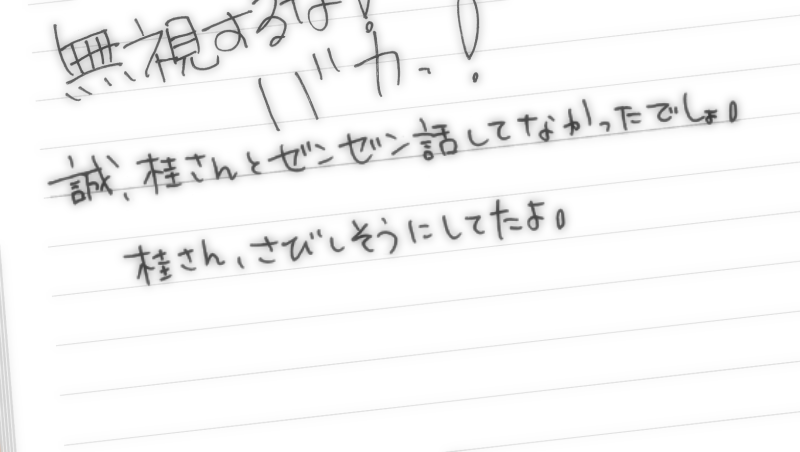 無視するな!
バカっ!
誠、桂さんとゼンゼン話してなかったでしょ。
桂さん、さびしそうにしてたよ。